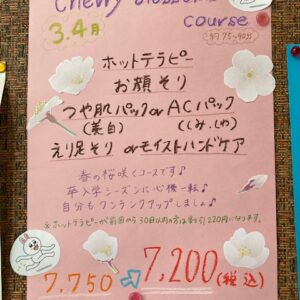 Cherry blossoms
course
3.4月
約75~90分
ホットテラピー
お顔そり
つや肌パックorACパック
(美白) (しみ.しわ)
えり足そり orモイストハンドケア
春の桜咲くコースです♪
卒入学シーズンに心機一転♪
自分もワンランクアップしましょ♪
※ホットテラピーが前回から30日以内の方は割引220円になります。
7,750 ⇨ 7,200(税込)